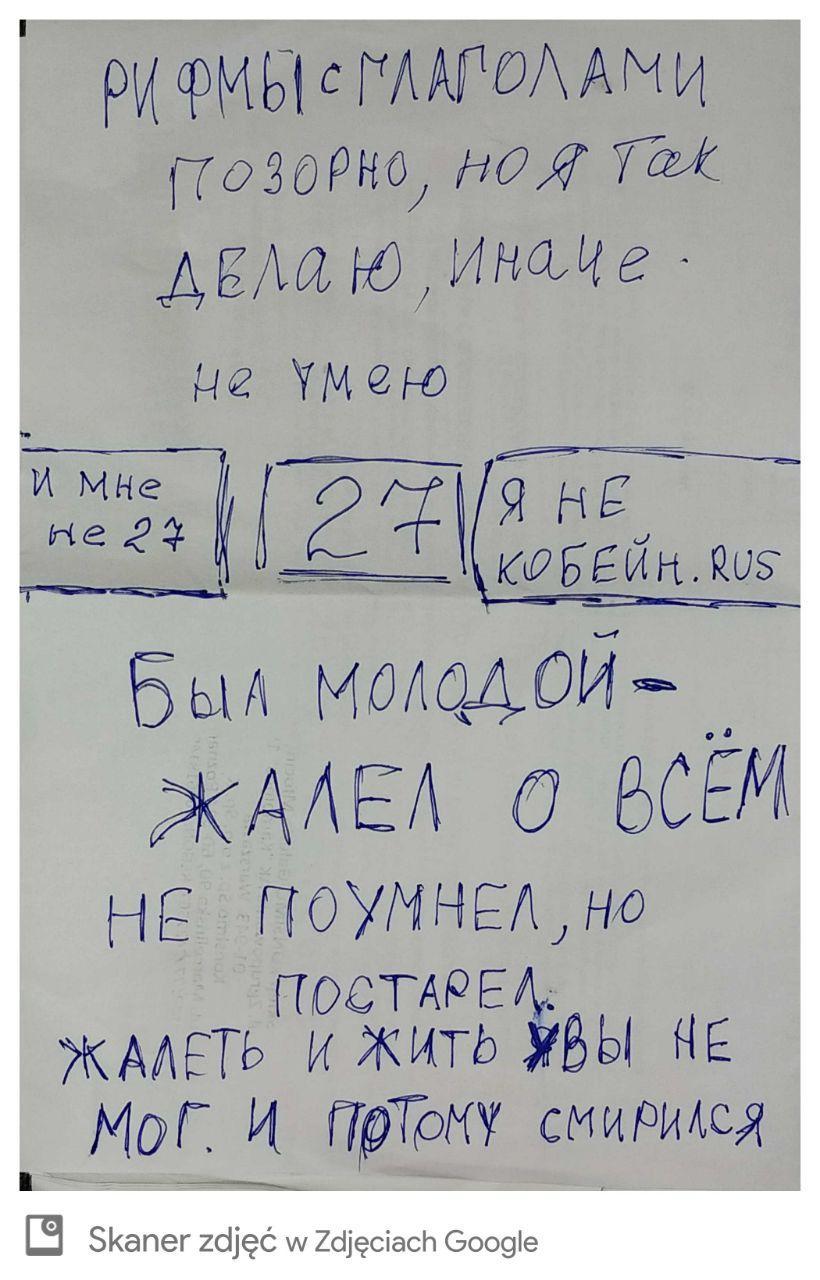 РИФМЫ С ГЛАГОЛАМИ
ПОЗОРНО, НО Я ТАК
ДЕЛАЮ, ИНАЧЕ
НЕ УМЕЮ
И МНЕ
НЕ 27
27
Я НЕ
КОБЕЙН.RUS
БЫЛ МОЛОДОЙ-
ЖАЛЕЛ О ВСЁМ
НЕ ПОУМНЕЛ, НО
ПОСТАРЕЛ.
ЖАЛЕТЬ И ЖИТЬ УВЫ НЕ
МОГ. И ПОТОМУ СМИРИЛСЯ
Skaner zdjęć w Zdjęciach Google